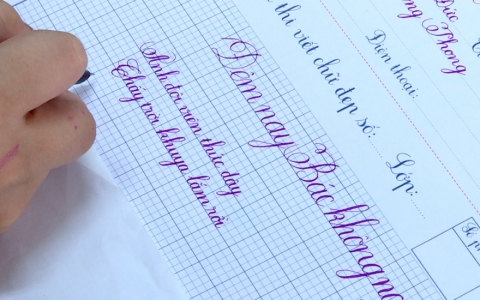 Đức
ng Phong
Điện thoại:
thi viết chữ đẹp số: Lớp:
Đêm nay Bác không n
Anh đội viên thức dậy
Thấy trời khuya lắm rồi